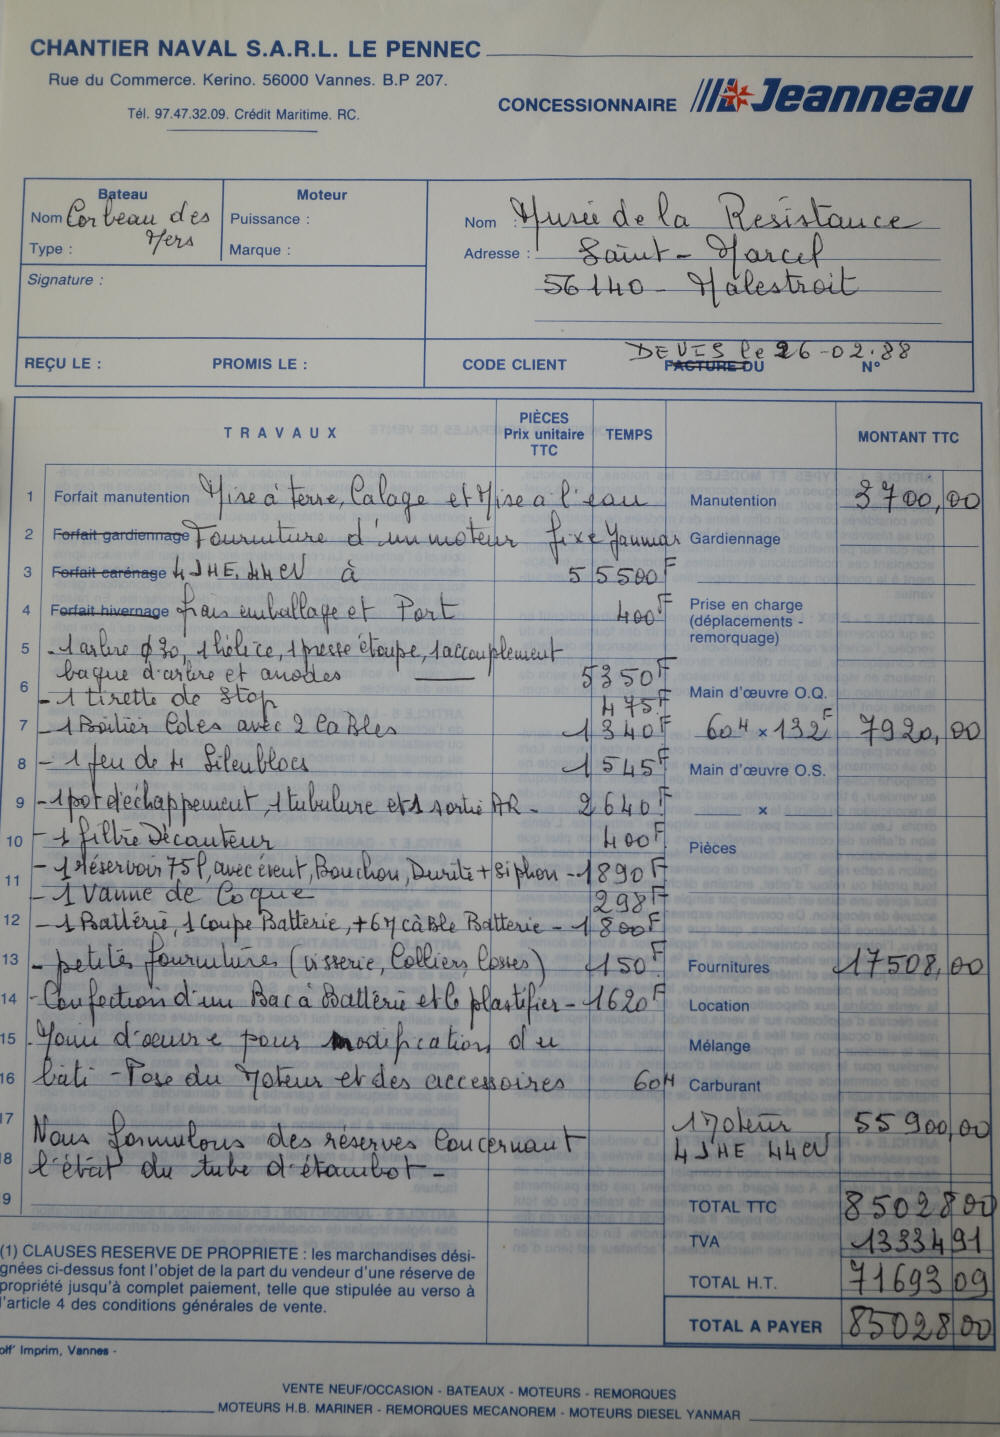 CHANTIER NAVAL S.A.R.L. LE PENNEC
Rue du Commerce. Kerino. 56000 Vannes. B.P 207.
Tél. 97.47.32.09. Crédit Maritime. RC.
CONCESSIONNAIRE Jeanneau
Bateau
Nom Corbeau des
Mers
Type :
Moteur
Puissance :
Marque :
Signature :
Nom Musée de la Resistance
Adresse : Saint-Marcel
56140 - Malestroit
REÇU LE : PROMIS LE :
DEVIS le 26-02.88
CODE CLIENT FACTURE DU N°
TRAVAUX PIÈCES Prix unitaire TTC TEMPS MONTANT TTC
1 Forfait manutention Mise à terre, Calage et Mise a l'eau Manutention 3700,00
2 Forfait gardiennage Fourniture d'un moteur fixe Yanmar Gardiennage
3 Forfait carénage 4JHE. 44CV à 55500F
4 Forfait hivernage frais emballage et Port 400F Prise en charge (déplacements - remorquage)
5 - 1 arbre ø30, 1 hélice, 1 presse étoupe, 1 accouplement
bague d'arbre et anodes 5350F
6 - 1 tirette de stop 475F Main d'œuvre O.Q.
7 - 1 Boîtier Coles avec 2 CaBles 1340F 60H x 132F 7920,00
8 - 1 feu de 4 Silenblocs 1545F Main d'œuvre O.S.
9 - 1 pot d'échappement, 1 tubulure et 1 sortie AR - 2640F x
10 - 1 filtre Décanteur 400F Pièces
- 1 Réservoir 75l, avec évent, Bouchon, Durite + Siphon - 1890F
11 - 1 Vanne de Coque 298F
12 - 1 Battérie, 1 Coupe Batterie, + 6M câBle Batterie - 1800F
13 - petites fournitures (visserie, Colliers, Cosses) 150F Fournitures 17508,00
14 - Confection d'un Bac à Battérie et le plastifier - 1620F Location
15 . Main d'œuvre pour modification du Mélange
16 bâti - Pose du Moteur et des accessoires 60H Carburant
17 Nous formulons des réserves Concernant 1 Moteur 55900,00
18 l'état du tube d'étambot - 4JHE 44CV
9
TOTAL TTC 85028 00
TVA 13334 91
TOTAL H.T. 71693 09
TOTAL A PAYER 85028 00
(1) CLAUSES RESERVE DE PROPRIETE : les marchandises dési-
gnées ci-dessus font l'objet de la part du vendeur d'une réserve de
propriété jusqu'à complet paiement, telle que stipulée au verso à
l'article 4 des conditions générales de vente.
olf' Imprim, Vannes -
VENTE NEUF/OCCASION - BATEAUX - MOTEURS - REMORQUES
MOTEURS H.B. MARINER - REMORQUES MECANOREM - MOTEURS DIESEL YANMAR